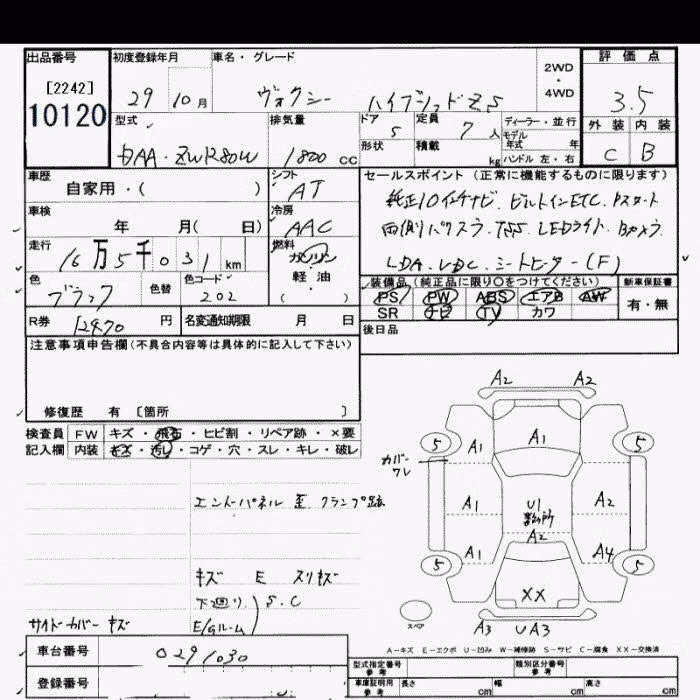 出品番号 初度登録年月 車名・グレード 2WD・4WD 評価点
[2242]
10120
29 10月 ヴォクシー ハイブリッドZS 3.5
型式 排気量 ドア 定員 ディーラー・並行 外装 内装
DAA-ZWR80W 1800cc 5 7人 モデル年式 年 C B
形状 積載 kg ハンドル 左・右
車歴 シフト セールスポイント(正常に機能するものに限ります)
自家用・( ) AT
純正10インチナビ、ビルトインETC、Pスタート
車検 冷房 両側パワスラ、TSS、LEDライト、Bカメラ
年 月( 日) AAC
走行 燃料 LDA、 シートヒーター(F)
16万5千031km ガソリン
軽油
( )
色 色替 色コード 装備品(純正品に限り○をつけてください) 新車保証書
ブラック 202 PS PW ABS エアB AW 有・無
SR ナビ TV カワ
R券 12970円 名変通知期限 月 日 後日品
注意事項申告欄(不具合内容等は具体的に記入して下さい)
修復歴 有 [箇所 ]
検査員 FW キズ・飛石・ヒビ割・リペア跡・×要
記入欄 内装 キズ・汚し・コゲ・穴・スレ・キレ・破レ
エンドパネル 歪 クランプ跡
キズ E スリキズ
下廻り S.C
E/Gルーム
サイドカバー キズ
A2 A2
5 A1 A1 5
カバーワレ
A1 U1 A2
A2
A1 A4
5 XX 5
スペア A3 UA3
A-キズ E-エクボ U-凹み W-補修跡 S-サビ C-腐食 XX-交換済
車台番号 0291030
型式指定番号 参考 類別区分番号 参考
登録番号
車庫証明用 参考 長さ cm 幅 cm 高さ cm